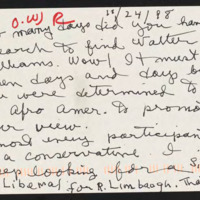 O.W R 10/24/98
o many days did you han
earch to find Walter
lliams. Wow! I must
en days and days b
u were determined to
Afro Amer. To promo
our view.
most every participan
a conservative I
ey looking for a S
Liberal for R. Limbaogh. Tha